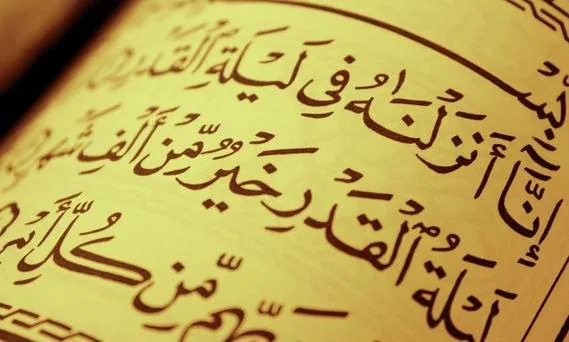 بِسْ
إِنَّآ أَنزَلْنَـٰهُ فِى لَيْلَةِ ٱلْقَدْرِ
لَيْلَةُ ٱلْقَدْرِ خَيْرٌ مِّنْ أَلْفِ شَهْرٍ
هِم مِّن كُلِّ أَمْرٍ